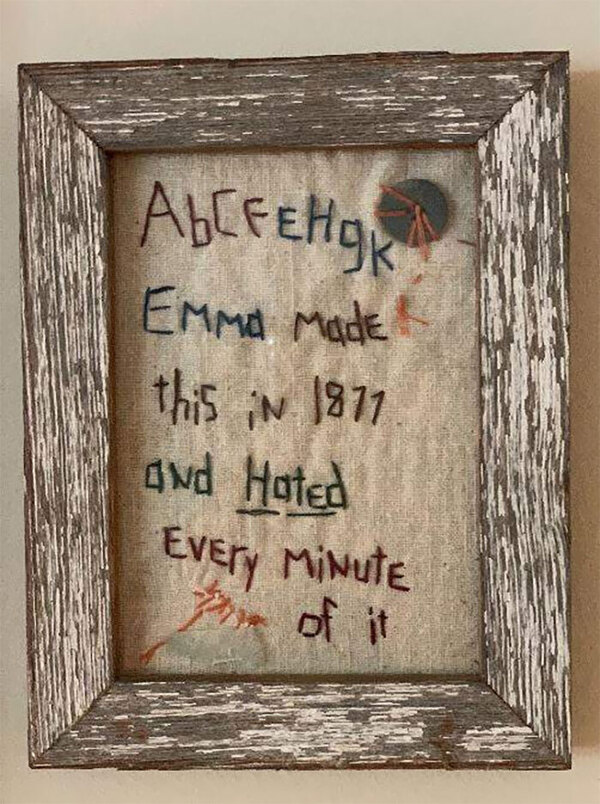 AbCFEHgK
EMMa MadE
thiS iN 1877
aNd Hated
EvERy MiNutE
of it